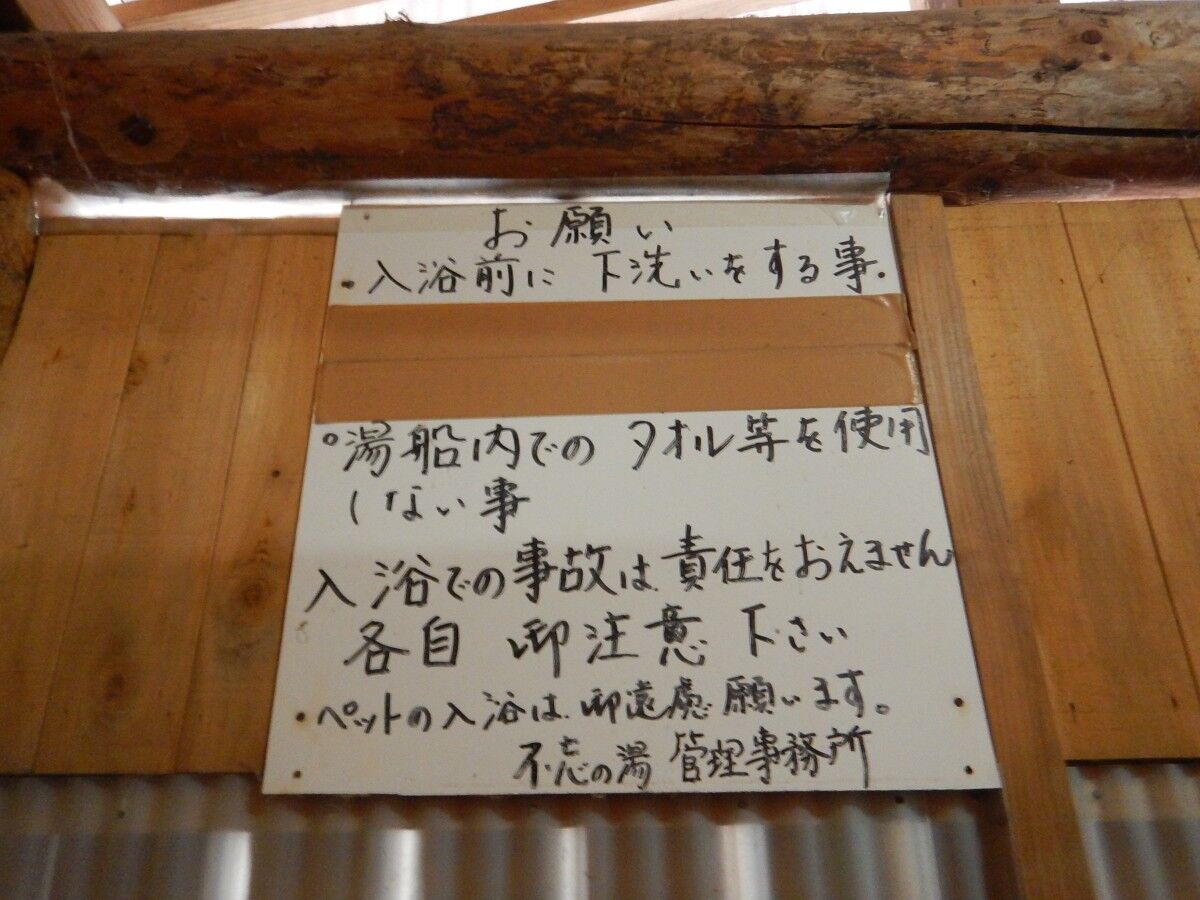 お願い
入浴前に 下洗いをする事.
°湯船内でのタオル等を使用
しない事
入浴での事故は責任をおえません
各自 御注意下さい
ペットの入浴は御遠慮願います。
不忘の湯 管理事務所